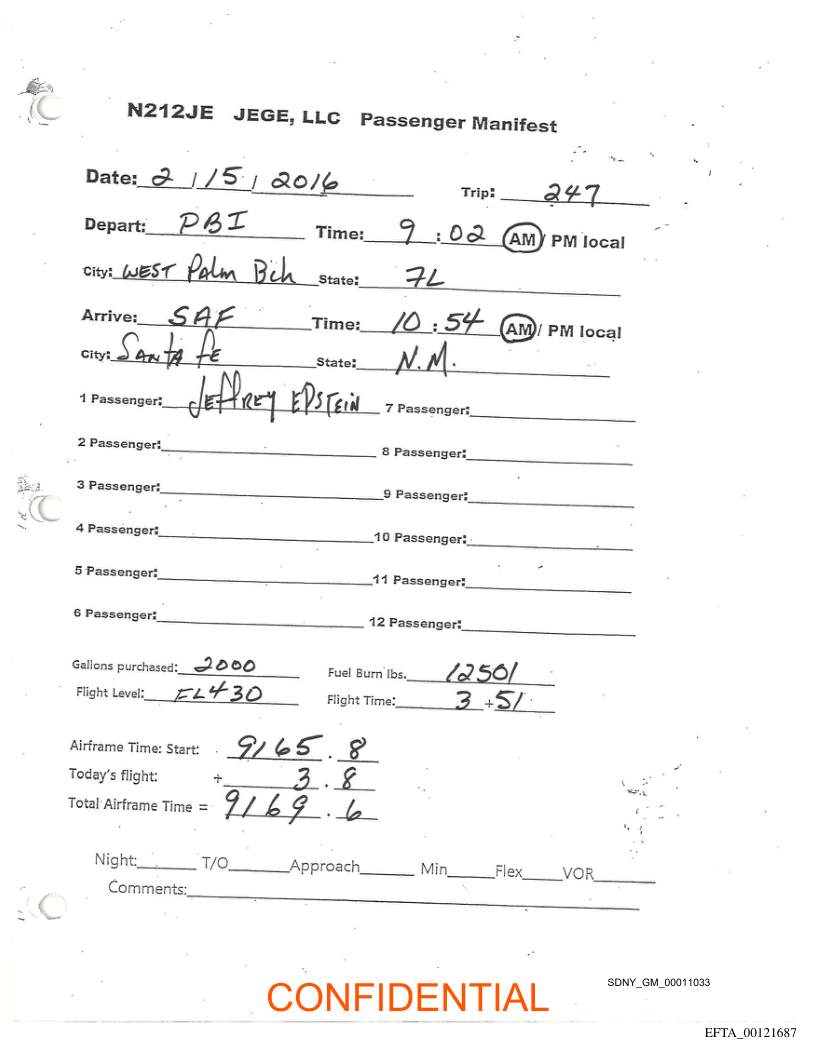 N212JE JEGE, LLC Passenger Manifest
Date: 2 / 15 / 2016 Trip: 247
Depart: PBI Time: 9 : 02 AM / PM local
City: WEST Palm Bch State: FL
Arrive: SAF Time: 10 : 54 AM / PM local
City: SANTA FE State: N.M.
1 Passenger: JEFFREY EPSTEIN 7 Passenger:
2 Passenger: 8 Passenger:
3 Passenger: 9 Passenger:
4 Passenger: 10 Passenger:
5 Passenger: 11 Passenger:
6 Passenger: 12 Passenger:
Gallons purchased: 2000 Fuel Burn lbs. 12501
Flight Level: FL430 Flight Time: 3 + 51
Airframe Time: Start: 9165 . 8
Today's flight: + 3 . 8
Total Airframe Time = 9169 . 6
Night: T/O Approach Min Flex VOR
Comments:
SDNY_GM_00011033
CONFIDENTIAL
EFTA_00121687